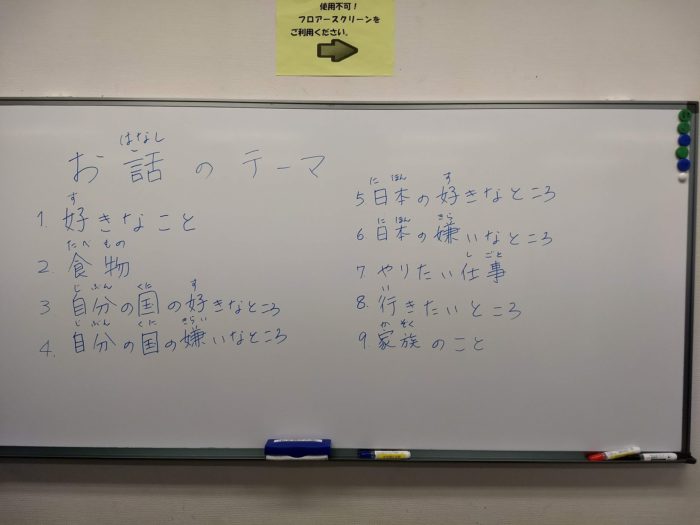 使用不可!
フロアースクリーンを
ご利用ください。
はなし
お話のテーマ
す
1. 好きなこと
たべもの
2. 食物
じぶん くに す
3. 自分の国の好きなところ
じぶん くに きらい
4. 自分の国の嫌いなところ
にほん す
5 日本の好きなところ
にほん きら
6 日本の嫌いなところ
しごと
7 やりたい仕事
い
8. 行きたいところ
かぞく
9. 家族のこと